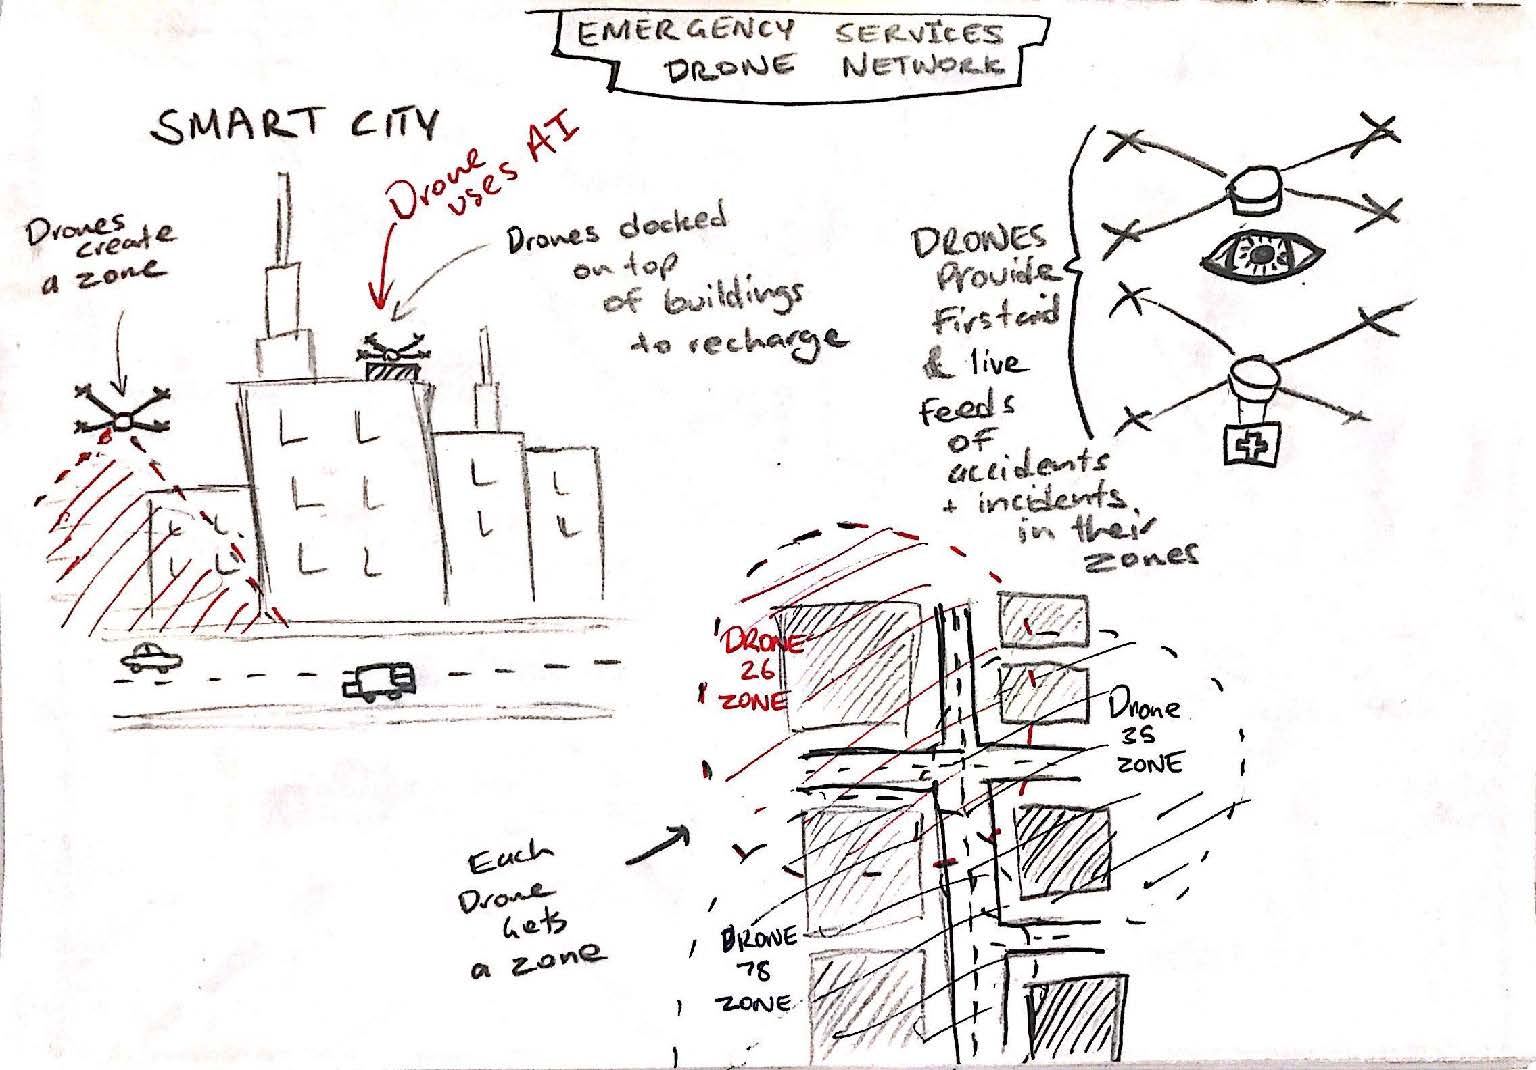 EMERGENCY SERVICES
DRONE NETWORK
SMART CITY
Drone
uses AI
Drones
create
a zone
Drones docked
on top
of buildings
to recharge
DRONES
Provide
First aid
& live
Feeds
of
accidents
+ incidents.
in their
zones
DRONE
26
ZONE
Drone
35
ZONE
Each
Drone
Gets
a zone
DRONE
78
ZONE